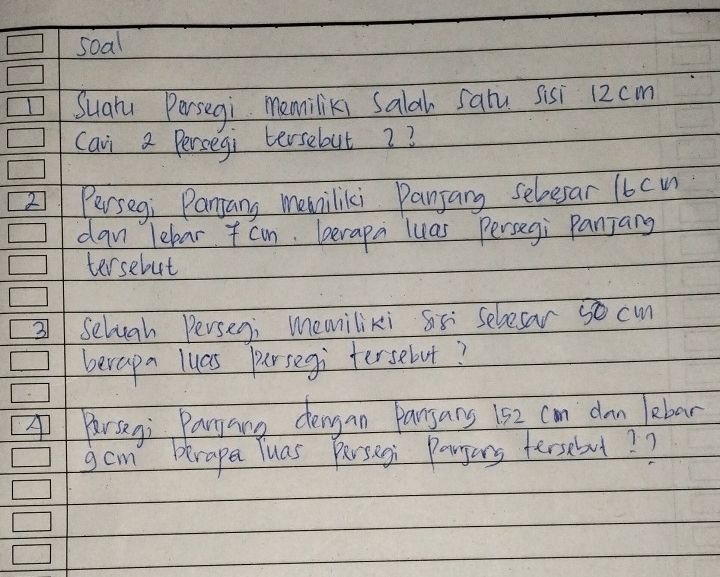 soal
1 Suatu Persegi memiliki salah satu sisi 12 cm
Cari 2 Persegi tersebut ??
2 Persegi Panjang memiliki Panjang sebesar 16 cm
dan lebar 7 cm. berapa luas Persegi Panjang
tersebut
3 Sebuah Persegi memiliki sisi sebesar 50 cm
berapa luas persegi tersebut ?
4 Persegi Panjang dengan Panjang 152 cm dan lebar
9 cm berapa luas Persegi Panjang tersebut ??